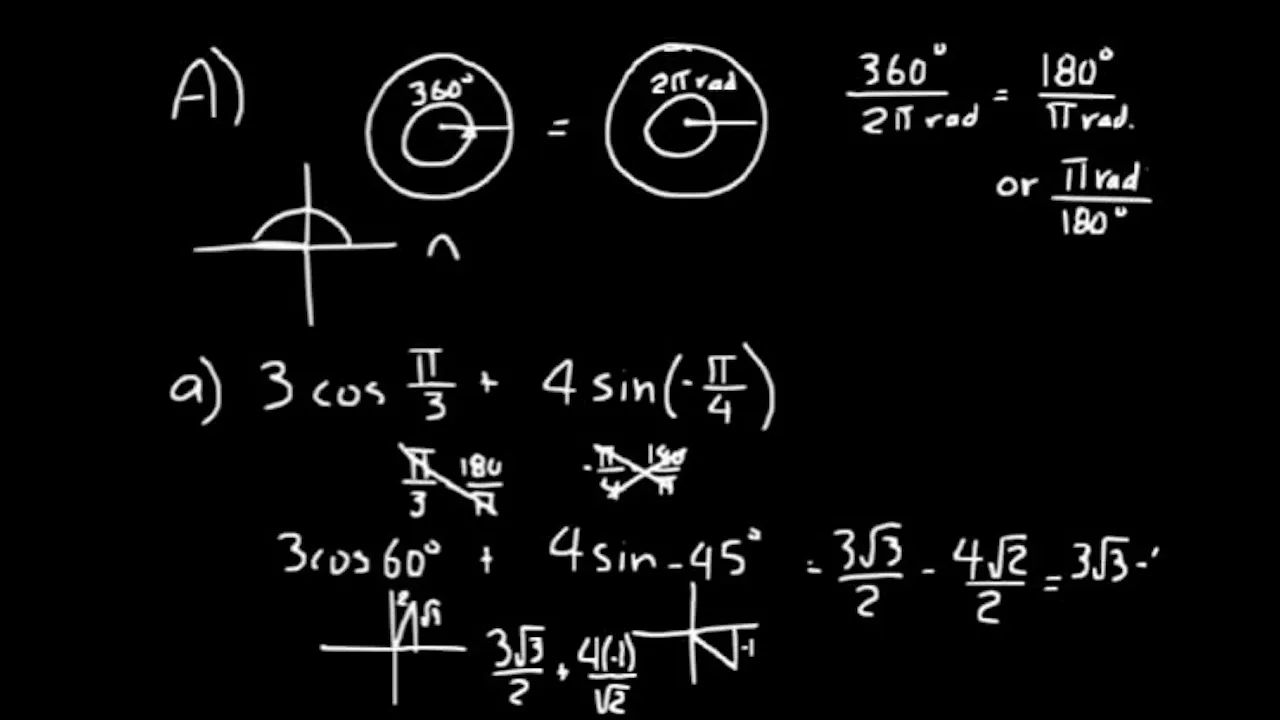 A) 360° = 2π rad 360°/2π rad = 180°/π rad.
or π rad/180°
a) 3 cos π/3 + 4 sin(-π/4)
π/3 180/π -π/4 180/π
3cos60° + 4sin-45° = 3√3/2 - 4√2/2 = 3√3 -
2 √3 -1
3√3/2 + 4(-1)/√2